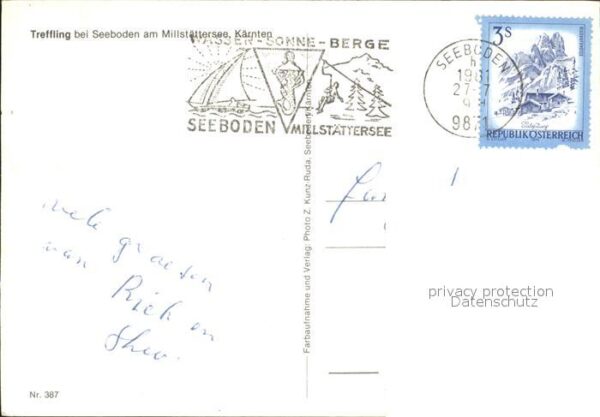 Treffling bei Seeboden am Millstättersee, Kärnten
WASSER-SONNE-BERGE
SEEBODEN MILLSTÄTTERSEE
SEEBODEN
1981
27-7
9871
3S
REPUBLIK ÖSTERREICH
Farbaufnahme und Verlag: Photo Z. Kunz-Ruda, Seeboden, Kärnten
vele groeten
van
Riek en
Theo.
privacy protection
Datenschutz
Nr. 387